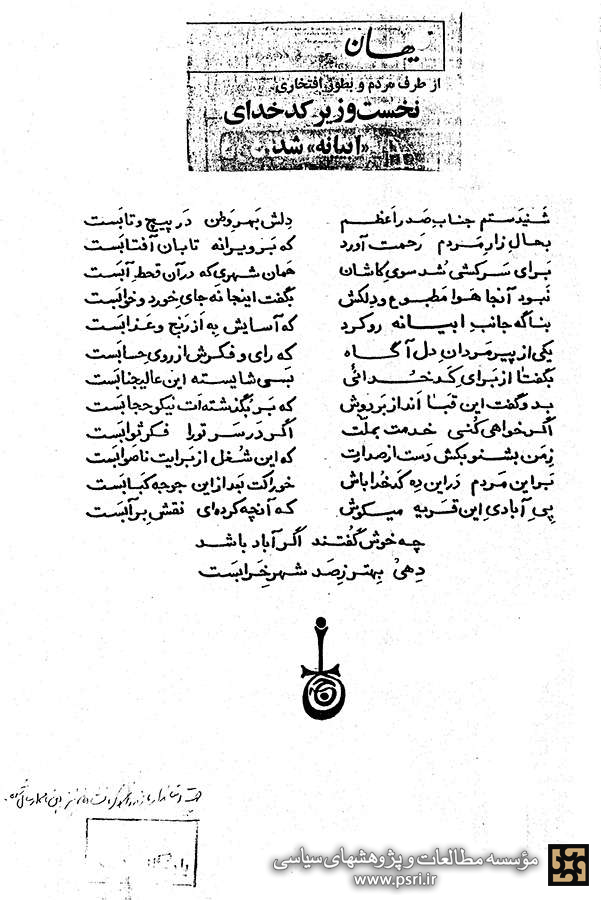 کیهان
از طرف مردم و بطور افتخاری
نخست وزیر کدخدای
«ابیانه» شد
شنیدستم جناب صدراعظم دلش بهر وطن در پیچ و تابست
بحال زار مردم رحمت آورد که بر ویرانه تابان آفتابست
برای سرکشی شد سوی کاشان همان شهری که در آن قحط آبست
نبود آنجا هوا مطبوع و دلکش بگفت اینجا نه جای خورد و خوابست
بناگه جانب ابیانه رو کرد که آسایش به از رنج و عذابست
یکی از پیر مردان دل آگاه که رای و فکرش از روی حسابست
بگفتا از برای کدخدائی بسی شایسته این عالیجنابست
بدو گفت این قبا اندازبردوش که بر بگذشته ات نیکو حجابست
اگر خواهی کنی خدمت بملت اگر در سر تورا فکر ثوابست
زمن بشنو بکش دست از صدارت که این شغل از برایت ناصوابست
بر این مردم در این ده کدخدا باش خوراکت بد از این جوجه کبابست
پی آبادی این قریه میکوش که آنچه کرده ای نقش بر آبست
چه خوش گفتند اگر آباد باشد
دهی بهتر ز صد شهر خرابست
مؤسسه مطالعات و پژوهشهای سیاسی
www.psri.ir